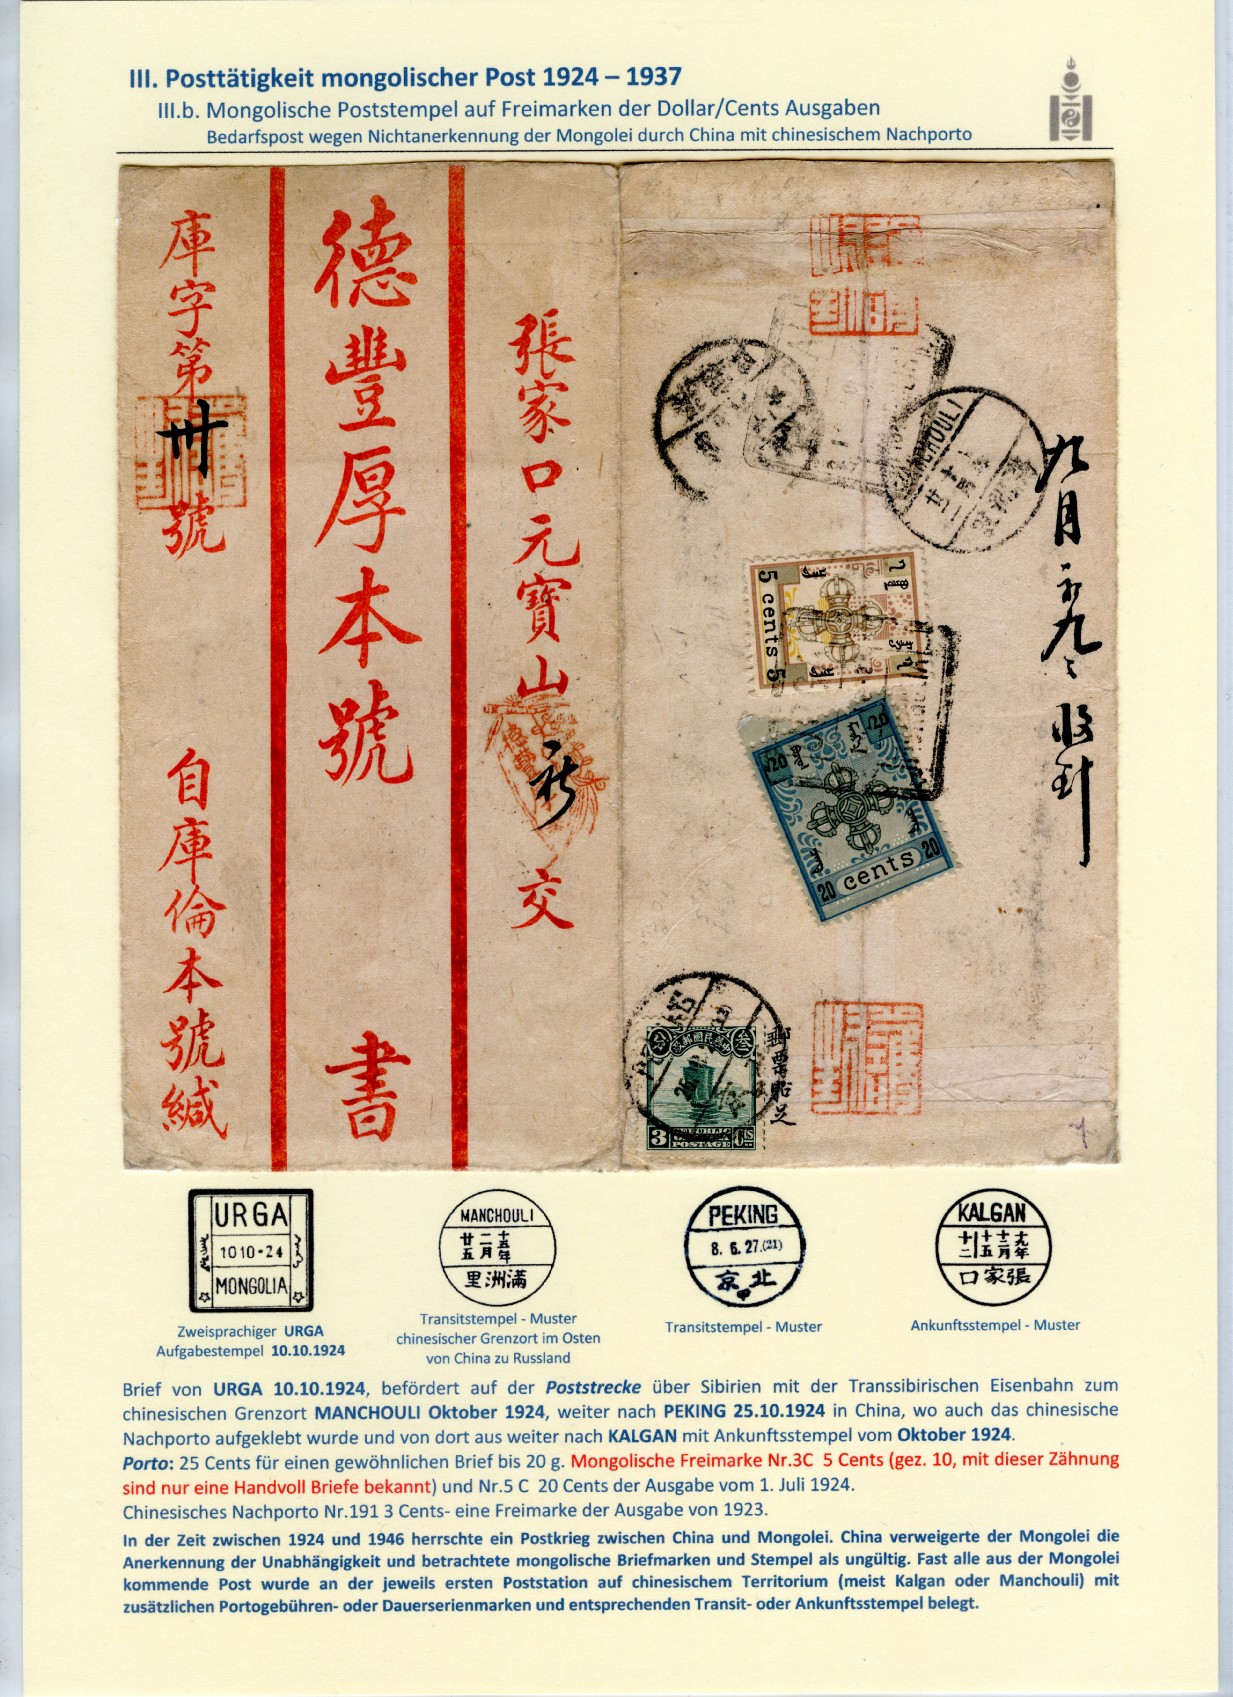 III. Posttätigkeit mongolischer Post 1924 – 1937
III.b. Mongolische Poststempel auf Freimarken der Dollar/Cents Ausgaben
Bedarfspost wegen Nichtanerkennung der Mongolei durch China mit chinesischem Nachporto
張家口元寶山
交
德豐厚本號
書
庫字第卅號
自庫倫本號緘
MANCHOULI
九月
九
收到
5 cents 5
20
20 cents 20
郵票貼足
3
POSTAGE
URGA
1010-24
MONGOLIA
MANCHOULI
廿二十五
五月年
里洲滿
PEKING
8. 6. 27.(21)
京北
KALGAN
口家張
Zweisprachiger URGA
Aufgabestempel 10.10.1924
Transitstempel - Muster
chinesischer Grenzort im Osten
von China zu Russland
Transitstempel - Muster
Ankunftsstempel - Muster
Brief von URGA 10.10.1924, befördert auf der Poststrecke über Sibirien mit der Transsibirischen Eisenbahn zum
chinesischen Grenzort MANCHOULI Oktober 1924, weiter nach PEKING 25.10.1924 in China, wo auch das chinesische
Nachporto aufgeklebt wurde und von dort aus weiter nach KALGAN mit Ankunftsstempel vom Oktober 1924.
Porto: 25 Cents für einen gewöhnlichen Brief bis 20 g. Mongolische Freimarke Nr.3C 5 Cents (gez. 10, mit dieser Zähnung
sind nur eine Handvoll Briefe bekannt) und Nr.5 C 20 Cents der Ausgabe vom 1. Juli 1924.
Chinesisches Nachporto Nr.191 3 Cents- eine Freimarke der Ausgabe von 1923.
In der Zeit zwischen 1924 und 1946 herrschte ein Postkrieg zwischen China und Mongolei. China verweigerte der Mongolei die
Anerkennung der Unabhängigkeit und betrachtete mongolische Briefmarken und Stempel als ungültig. Fast alle aus der Mongolei
kommende Post wurde an der jeweils ersten Poststation auf chinesischem Territorium (meist Kalgan oder Manchouli) mit
zusätzlichen Portogebühren- oder Dauerserienmarken und entsprechenden Transit- oder Ankunftsstempel belegt.